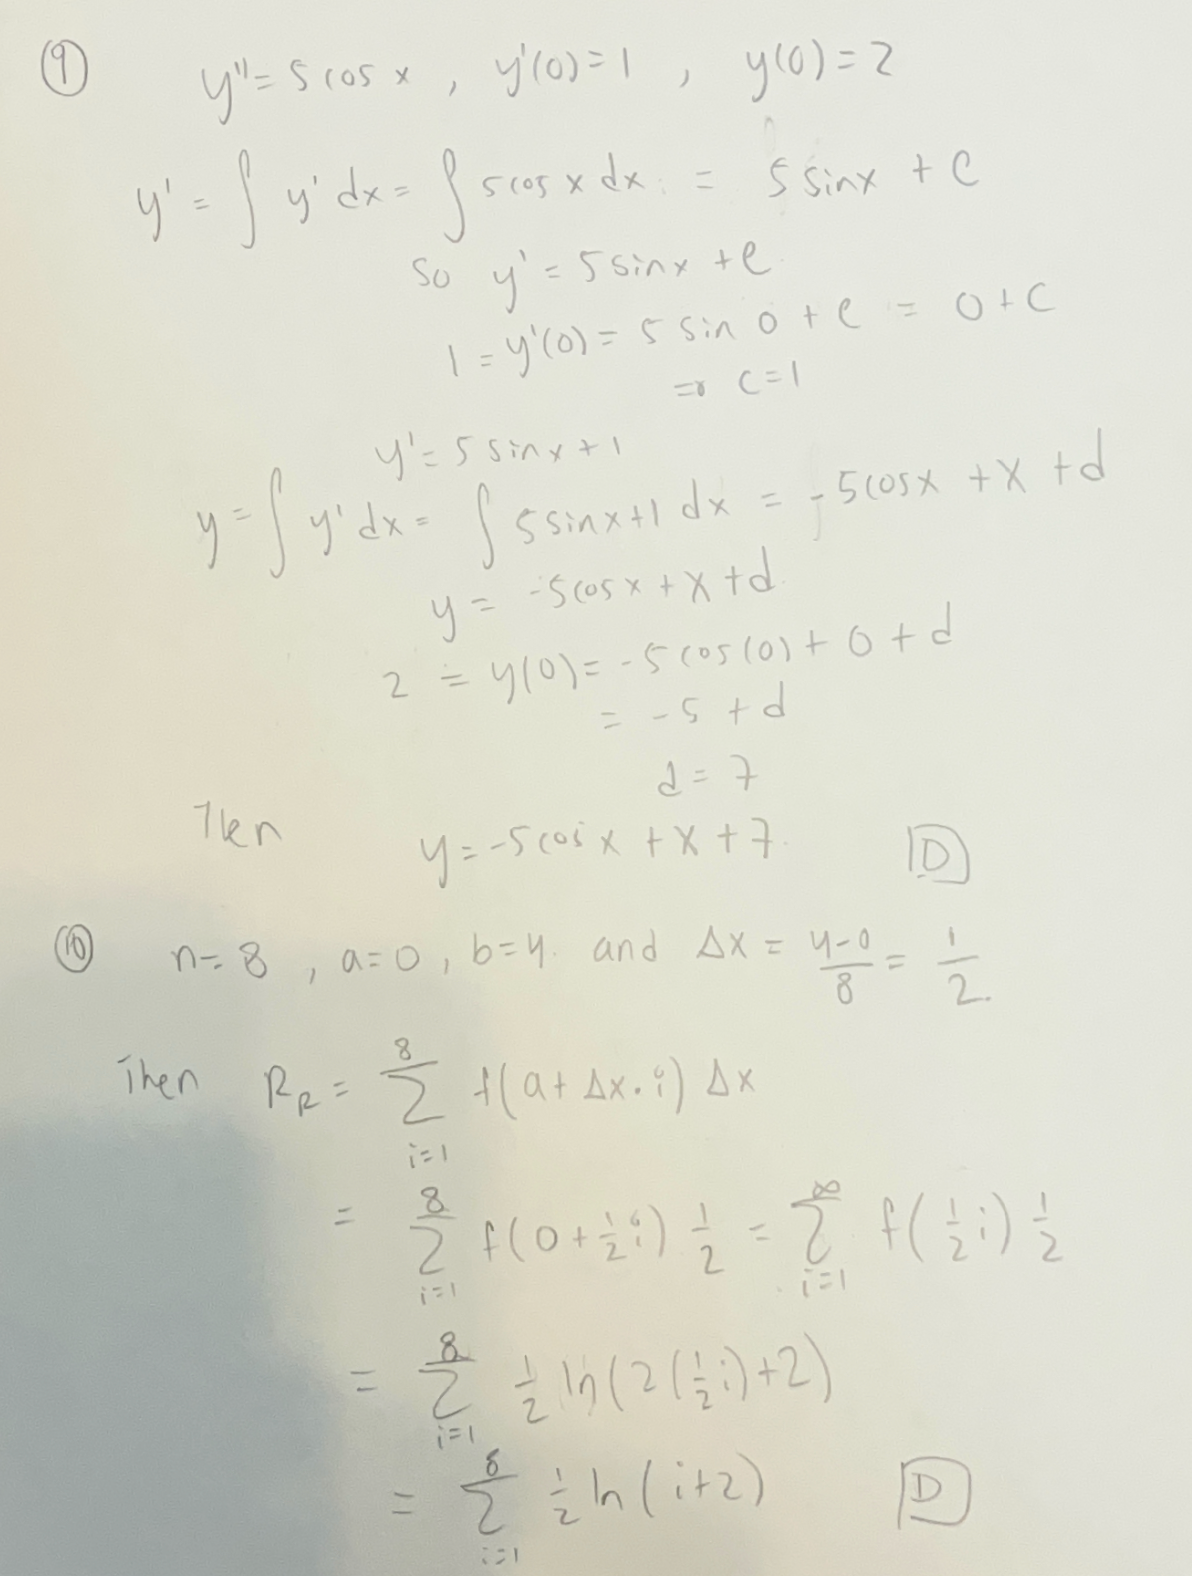 ⑨ y'' = 5 cos x , y'(0) = 1 , y(0) = 2
y' = ∫ y' dx = ∫ 5 cos x dx = 5 sin x + C
So y' = 5 sin x + C
1 = y'(0) = 5 sin 0 + C = 0 + C
⇒ C = 1
y' = 5 sin x + 1
y = ∫ y' dx = ∫ 5 sin x + 1 dx = -5 cos x + x + d
y = -5 cos x + x + d.
2 = y(0) = -5 cos(0) + 0 + d
= -5 + d
d = 7
Then y = -5 cos x + x + 7. D
⑩ n = 8 , a = 0 , b = 4. and Δx = (4-0)/8 = 1/2.
Then R_R = Σ_{i=1}^{8} f(a + Δx · i) Δx
= Σ_{i=1}^{8} f(0 + 1/2 i) 1/2 = Σ_{i=1}^{∞} f(1/2 i) 1/2
= Σ_{i=1}^{8} 1/2 ln(2(1/2 i) + 2)
= Σ_{i=1}^{8} 1/2 ln(i + 2) D